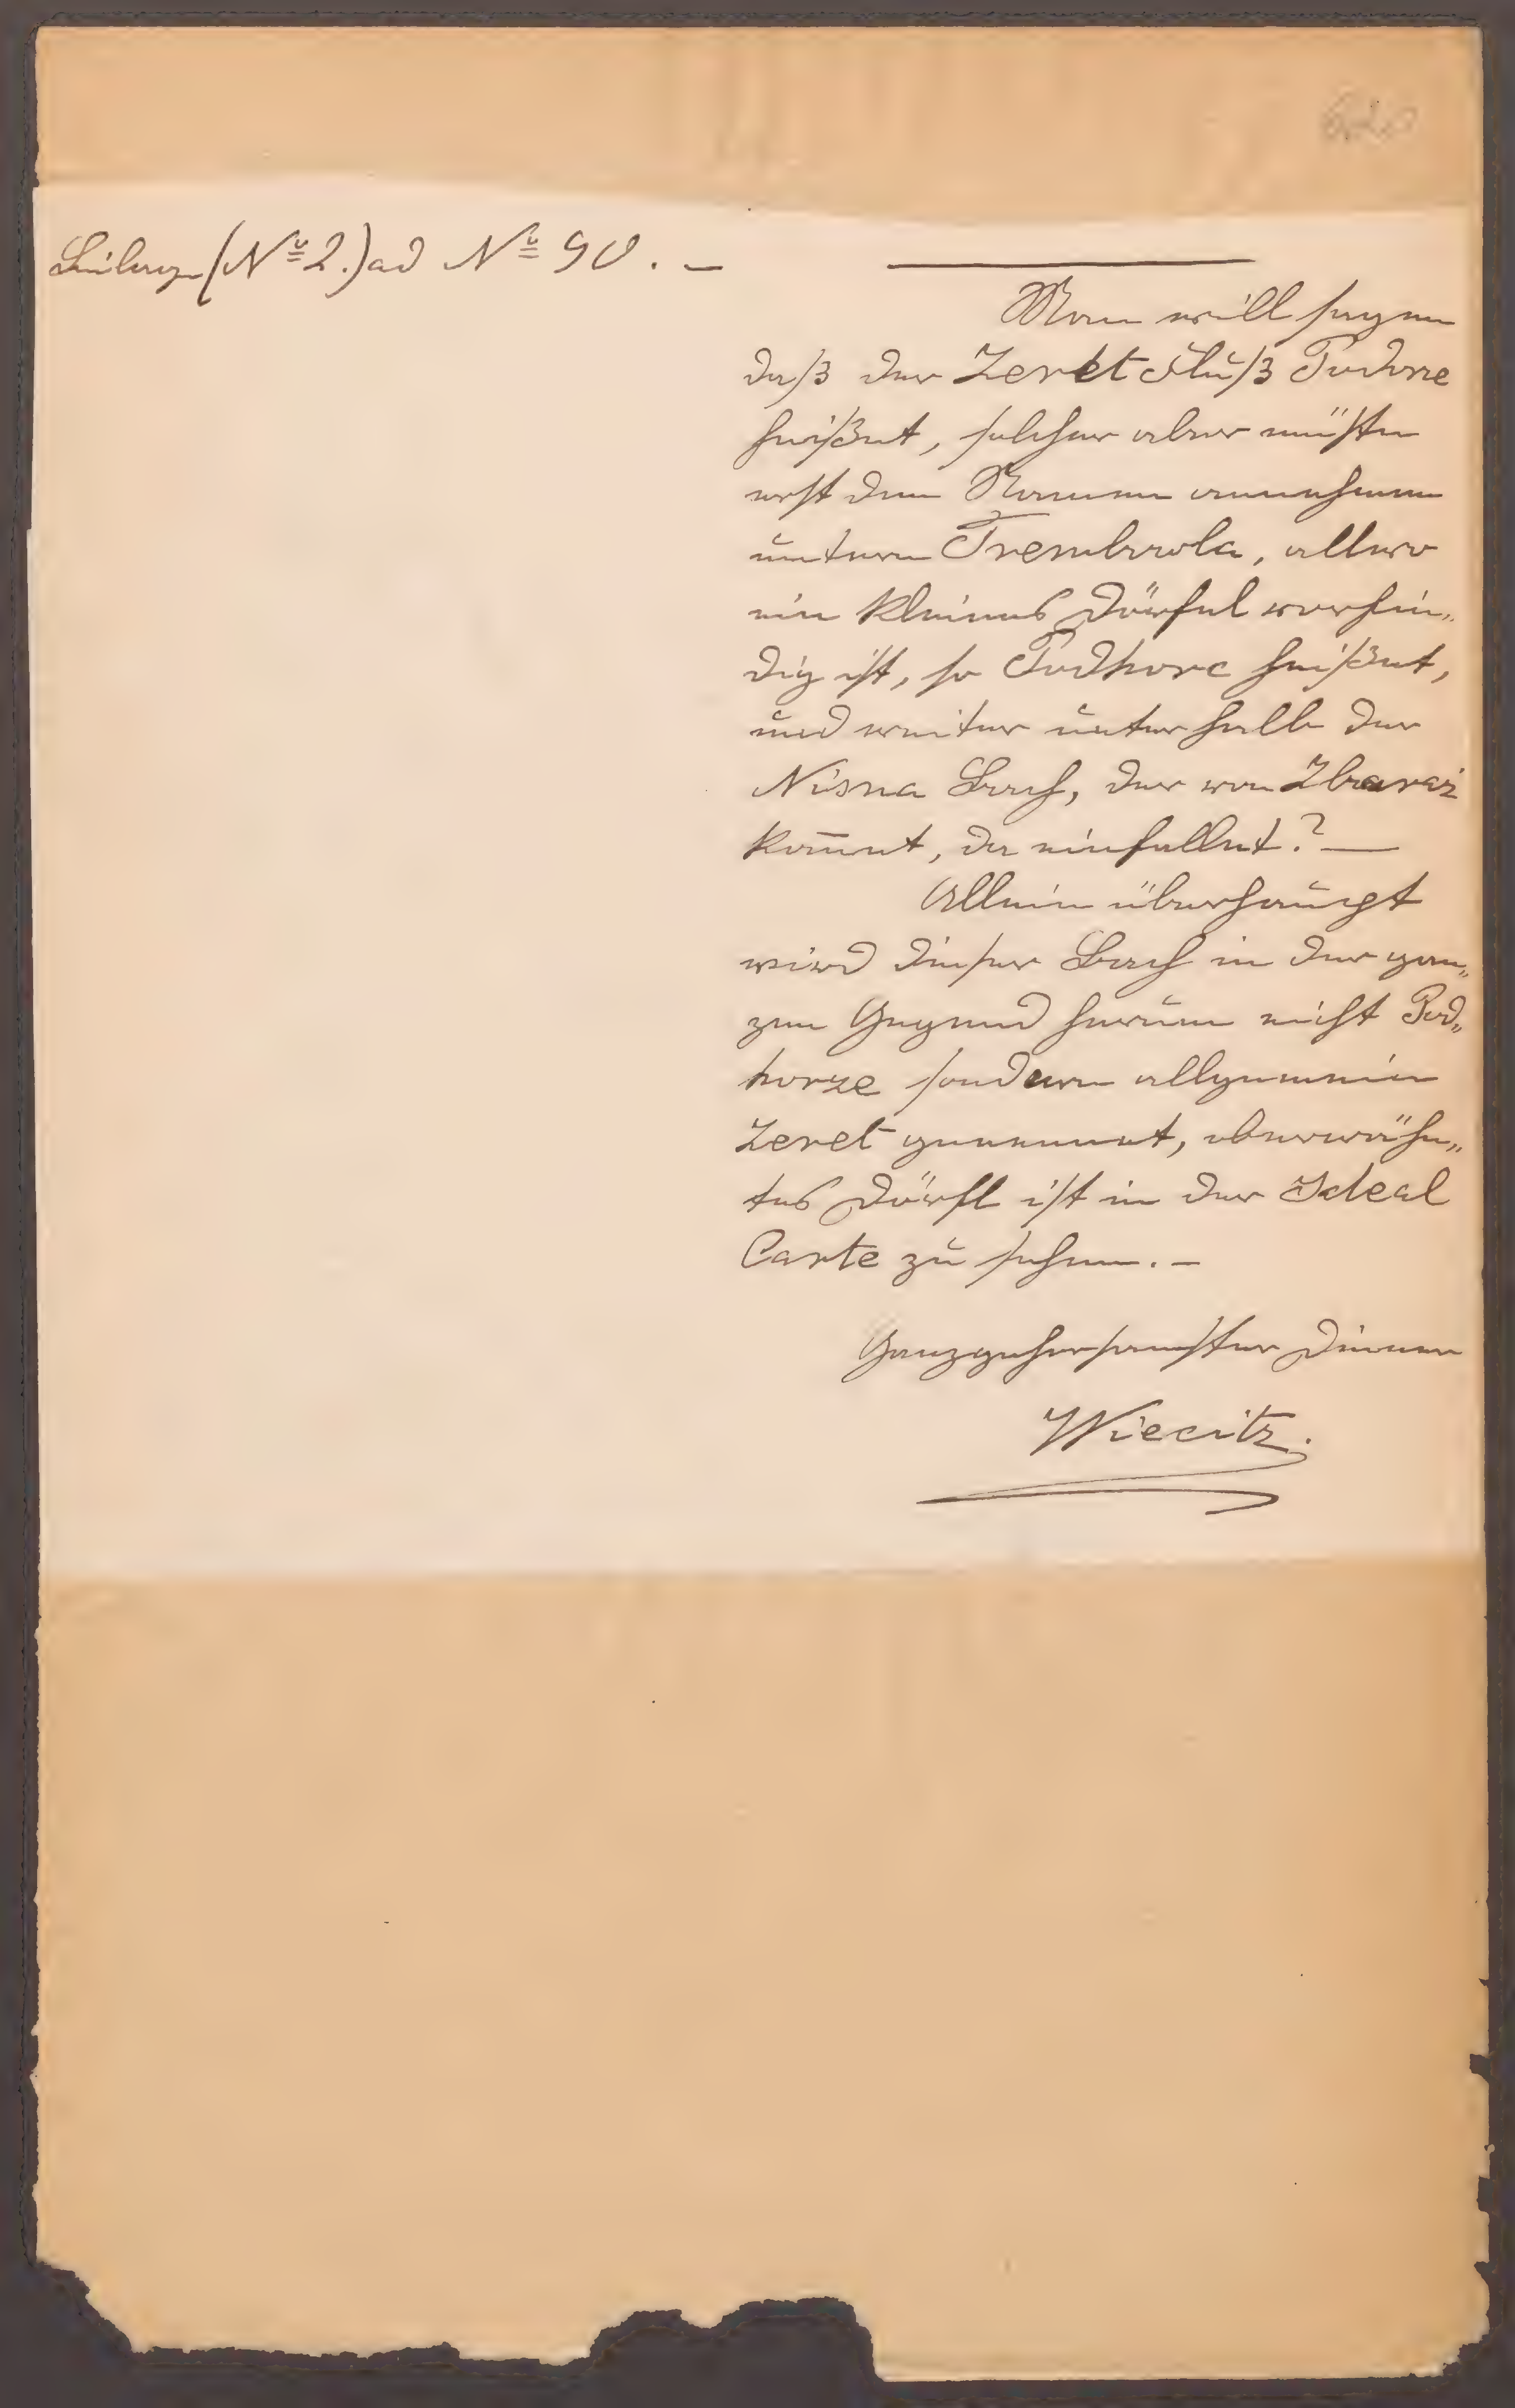 Beilage (Nº 2.) ad Nº 90. –
Man will sagen
daß der Zeret Fluß Podorze
heißet, solcher aber müste
erst den Nammen annehmen
untern Trembowla, allwo
ein kleines Dörfel vorfin„
dig ist, so Podhorc heißet,
und weiter unterhalb der
Nisna Bach, der von Zbaraz
kom̅et, da einfallet? —
Allein überhaupt
wird dieser Bach in der gan„
zen Gegend herum nicht Pod„
horze sondern allgemein
Zeret genennet, oberwähn„
tes Dörfl ist in der Ideal
Carte zu sehen. –
Ganzgehorsamster Diener
Wiecitz.